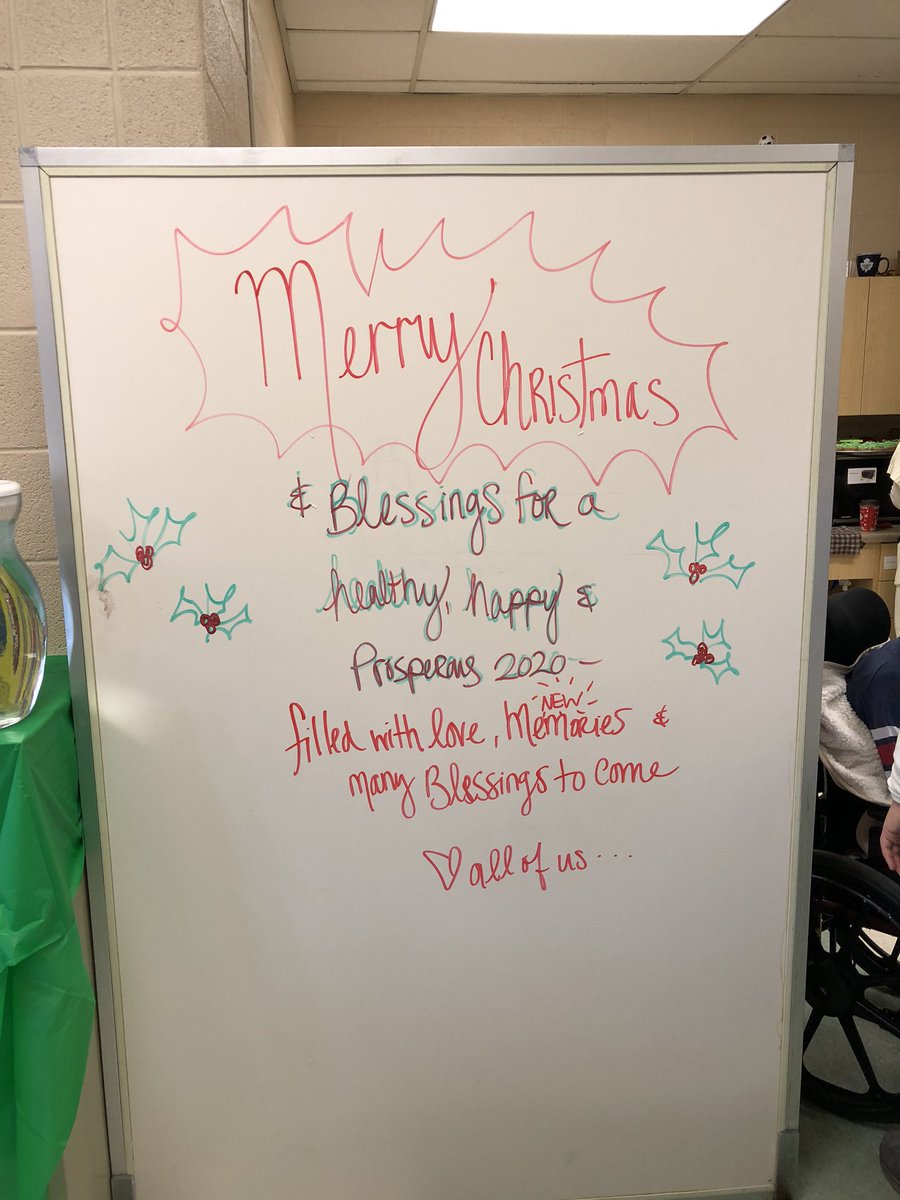 Merry Christmas
& Blessings for a
healthy, happy &
Prosperous 2020 –
NEW
filled with love, Memories &
many Blessings to come
♡ all of us...